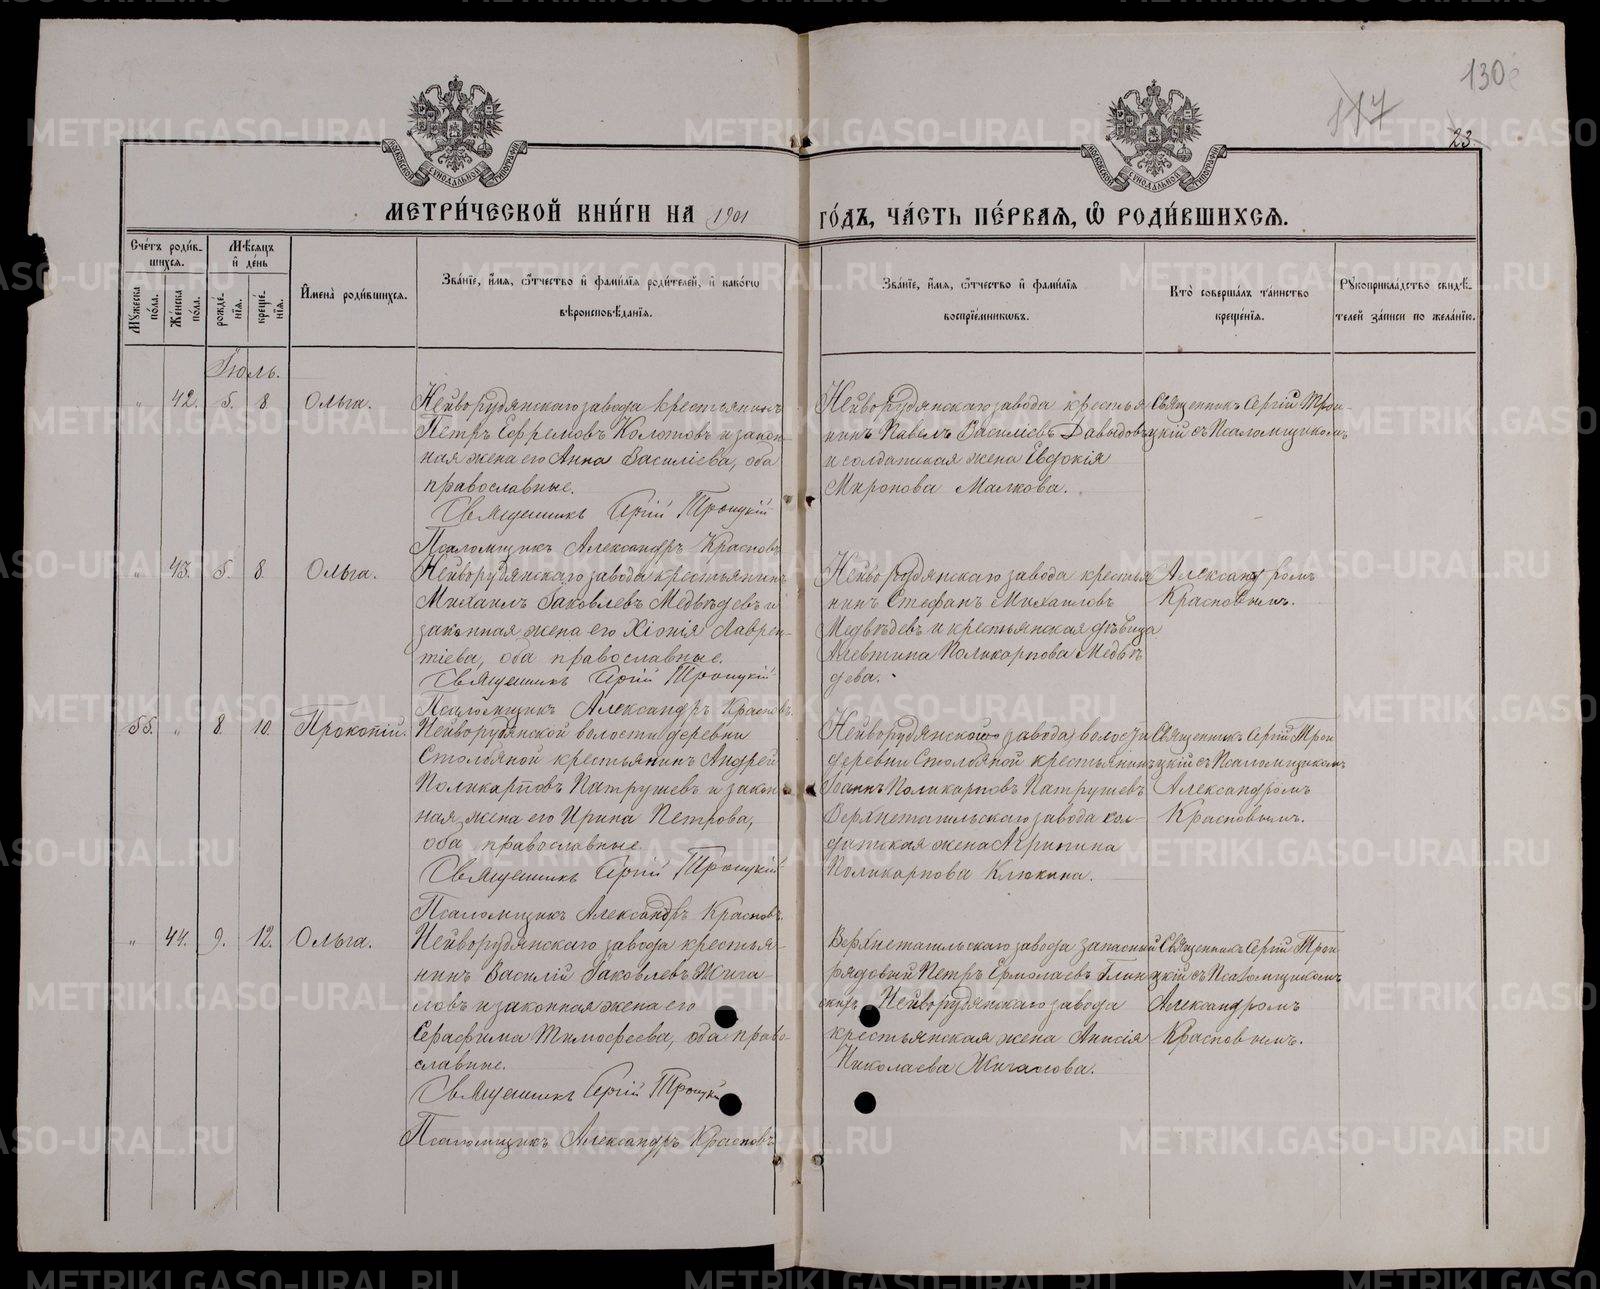 130
117
23
МОСКОВСКОЙ СѴНОДАЛЬНОЙ ТИПОГРАФІИ
МОСКОВСКОЙ СѴНОДАЛЬНОЙ ТИПОГРАФІИ
МЕТРИ́ЧЕСКОЙ КНИ́ГИ НА 1901 ГО́ДЪ, ЧА́СТЬ ПЕ́РВАЯ, Ѡ҆ РОДИ́ВШИХСЯ.
Сче́тъ роди́в-
шихся.
Мꙋ́жеска по́ла.
Же́нска по́ла.
Мѣ́сяцъ
и҆ де́нь
рожде́-
нїя.
креще́-
нїя.
И҆мена̀ роди́вшихся.
Зва́нїе, и҆́мя, ѻ҆́тчество и҆ фами́лїя роди́телей, и҆ како́гѡ
вѣроисповѣ́данїя.
Зва́нїе, и҆́мя, ѻ҆́тчество и҆ фами́лїя
воспрїе́мниковъ.
Кто̀ соверша́лъ та́инство
креще́нїя.
Рꙋкоприкла́дство свидѣ́-
телей за́писи по жела́нїю.
Іюль.
„ 42. 5. 8 Ольга.
Нейворудянскаго завода крестьянинъ
Петръ Ефремовъ Колотовъ и закон-
ная жена его Анна Василіева, оба
православные.
Священникъ Сергій Троицкій
Псаломщикъ Александръ Красновъ
Нейворудянскаго завода крестья
нинъ Павелъ Василіевъ Давыдовъ
и солдатская жена Евдокія
Миронова Малкова.
Священникъ Сергій Трои-
цкій съ Псаломщикомъ
„ 43. 5. 8. Ольга.
Нейворудянскаго завода крестьянинъ
Михаилъ Іаковлевъ Медвѣдевъ и
законная жена его Хіонія Лаврен-
тіева, оба православные.
Священникъ Сергій Троицкій
Псаломщикъ Александръ Красновъ.
Нейворудянскаго завода крестья
нинъ Стефанъ Михаиловъ
Медвѣдевъ и крестьянская дѣвица
Алевтина Поликарпова Медвѣ
дева.
Александромъ
Красновымъ.
55. „ 8. 10. Прокопій.
Нейворудянской волости деревни
Столбяной крестьянинъ Андрей
Поликарповъ Патрушевъ и закон
ная жена его Ирина Петрова,
оба православные
Священникъ Сергій Троицкій
Псаломщикъ Александръ Красновъ.
Нейворудянского завода волости
деревни Столбяной крестьянинъ
Іоаннъ Поликарповъ Патрушевъ
Верхнетагильскаго завода сол-
датская жена Агрипина
Поликарпова Клюкина.
Священникъ Сергій Трои
цкій съ Псаломщикомъ
Александромъ
Красновымъ.
„ 44. 9. 12. Ольга.
Нейворудянскаго завода крестья-
нинъ Василій Іаковлевъ Жига-
ловъ и законная жена его
Серафима Тимофеева, оба право-
славные.
Священникъ Сергій Троицкій
Псаломщикъ Александръ Красновъ
Верхнетагильскаго завода запасный
рядовый Петръ Ермолаевъ Глин
скихъ Нейворудянскаго завода
крестьянская жена Анисія
Николаева Жигалова.
Священникъ Сергій Трои-
цкій съ Псаломщикомъ
Александромъ
Красновымъ.
METRIKI.GASO-URAL.RU